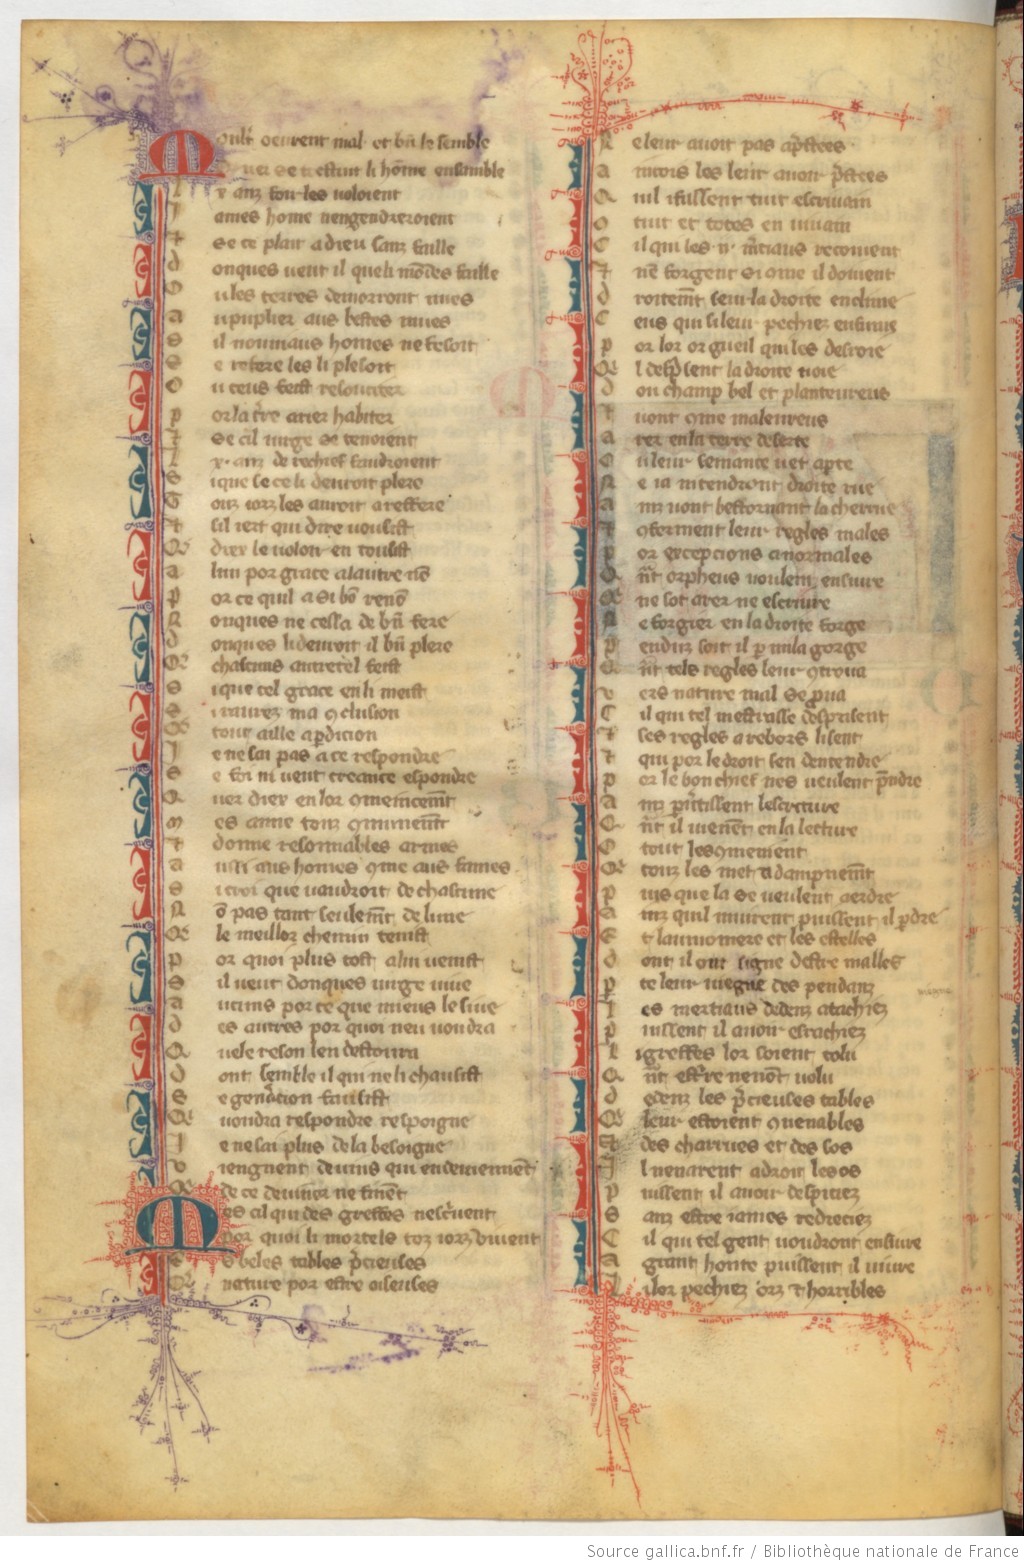 Moult oeurent mal et bñ le semble
Q
.lx. anz touz les voloient
James home nengendreroient
t se ce plait a dieu sanz faille
d onques veut il que li mõdes faille
O u les terres demorront nues
a pupplier aus bestes mues
S il nouviaus homes ne fesoit
S e refere les li plesoit
O u ceus feist resousciter
p or la t̃re arier habiter
t se cil virge se tenoient
l x. anz de rechief faudroient
S ique se ce li devoit plere
T ouz iorz les auroit a reffere
t sil iert qui dire vousist
Q diex le voloir en tousist
a lun por grace a lautre nõ
p or ce quil a si bõ renõ
N onques ne cessa de bñ fere
d onques li devroit il bñ plere
Q chascuns autretel feist
S ique tel grace en li meist
S i raurez ma 9clusion
Q tout aille a p̱dicion
J e ne sai pas a ce respondre
S e foi ni veut creance espondre
Q uer diex en lor 9mencem̃t
m es anme touz 9munem̃t
t donne resonnables armes
a usi aus homes 9me aus fames
S i croi que vaudroit de chascune
N õ pas tant seulem̃t de lune
Q le meillor chemin tenist
p or quoi plus tost a lui venist
S il veut donques virge vive
a ucuns por ce que miens le sive
d es autres por quoi neu voudra
Q uele reson len destourra
d ont semble il qui ne li chausist
S e gen̾acion fausist
Q voudra respondre respoigne
J e ne sai plus de la besoigne
v iengnent devins qui en devienent
Q de ce deviner ne finẽt
Mes cil qui des greffes nescrivent
por quoi li mortels toz iorz vivent
E s beles tables p̃cieuses
Q nature por estre oiseuses
N e leur avoit pas ap̃stees
a incois les leur avoit p̃stees
Q uil i fussent tuit escrivain
O tuit et totes en vivain
C il qui les .ij. m̃tiaus recoivent
t nẽ forgent si 9me il doivent
d roitem̃t seur la droite enclume
C eus qui si leur pechiez enfume
p or lor orgueil qui les desroie
Q l desp̃sent la droite voie
d ou champ bel et planteureus
t vont 9me maleureus
a rer en la terre deserte
O u leur semance vet a p̱te
N e ia ni tendront droite rue
a inz vont bestornant la cherrue
t 9ferment leur regles males
p or excepcions anormales
Q ñt orpheus voulent ensivre
Q ne sot arer ne escrivre
N e forgier en la droite forge
p enduz soit il p̱ mi la gorge
Q ñt tels regles leur 9trova
v ers nature mal se p̱rova
C il qui tel mestresse desprisent
t ses regles a rebors lisent
t qui por le droit sen dentendre
p or le bon chief nes veulent p̃ndre
a inz p̱vertissent lescreture
Q ñt il vienẽt en la lecture
O tout lesq̃mement
Q touz les met a dampnem̃t
p uis que la se veulent aerdre
a inz quil muirent puissent il p̱dre
E t laumosniere et les estelles
d ont il ont signe destre malles
p te leur viegne des pendanz
l es mertiaus dedenz atachiez
p uissent il avoir esrachiez
l i greffes lor soient tolu
Q ñt escrire nen ont volu
d edenz les p̃cieuses tables
Q leur estoient 9venables
t des charrues et des sos
S il nen arent a droit les os
p uissent il avoir despiciez
S anz estre iames redreciez
C il qui tel gent voudront ensivre
a grant honte puissent il vivre
l i lor pechiez orz ⁊ horribles
Source gallica.bnf.fr / Bibliothèque nationale de France